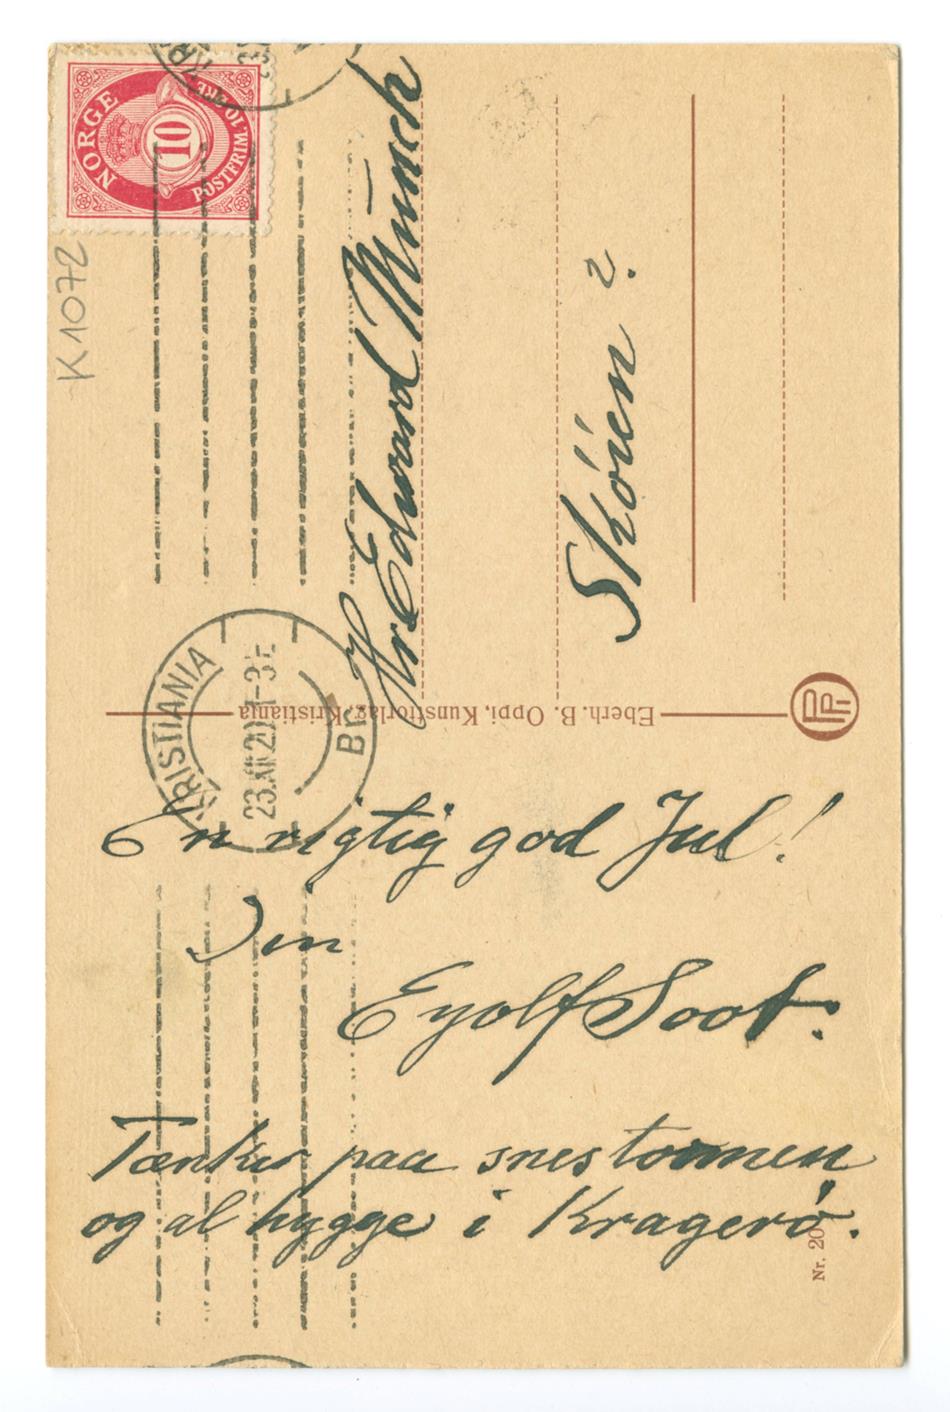 NORGE
10
POSTFRIM. 10 ØRE
K 1072
Hr Edvard Munch
Skóien ?.
KRISTIANIA
23.XII.
BR.
Eberh. B. Oppi, Kunstforlag, Kristiania
En rigtig god Jul!
Din
Eyolf Soot.
Tænker paa snestormen
og al hygge i Kragerø.
Nr. 20